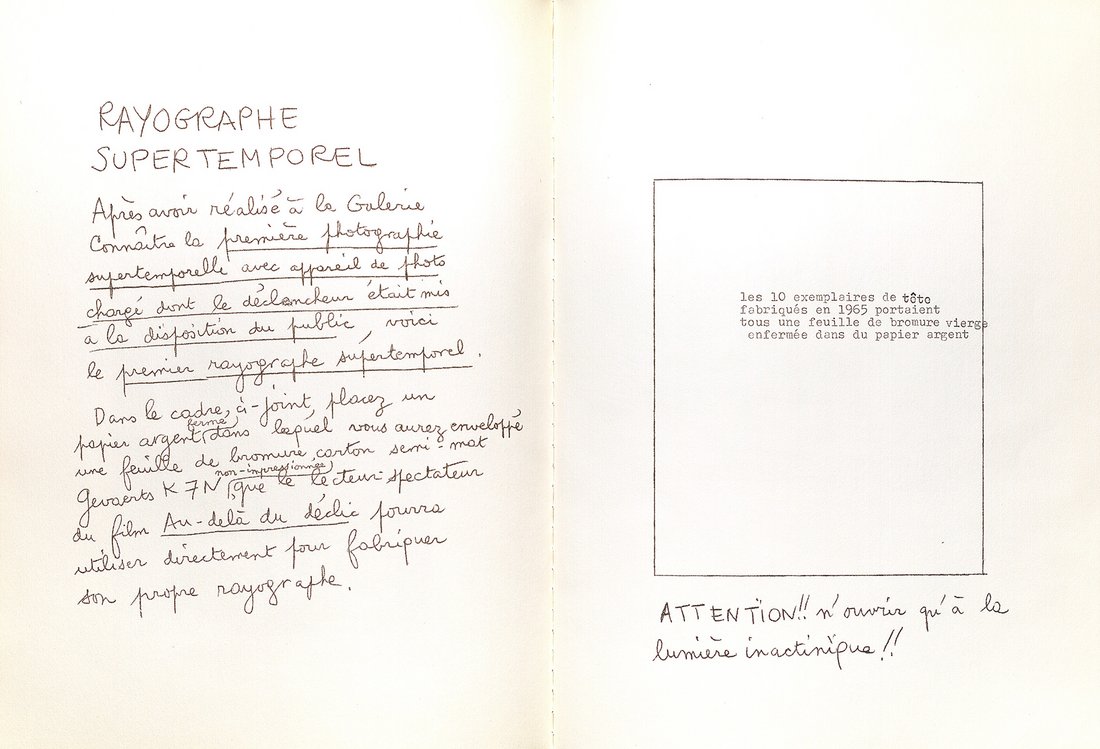 RAYOGRAPHE
SUPERTEMPOREL
Après avoir réalisé à la Galerie
Connaître la première photographie
supertemporelle avec appareil de photo
chargé dont le déclencheur était mis
à la disposition du public, voici
le premier rayographe supertemporel.
Dans le cadre, ci-joint, placez un
papier argent (fermé) dans lequel vous aurez enveloppé
une feuille de bromure, carton semi-mat
Gevaerts K 7N (non-impressionnée), que le lecteur-spectateur
du film Au-delà du déclic pourra
utiliser directement pour fabriquer
son propre rayographe.
les 10 exemplaires de tôto
fabriqués en 1965 portaient
tous une feuille de bromure vierge
enfermée dans du papier argent
ATTENTION!! n'ouvrir qu'à la
lumière inactinique!!